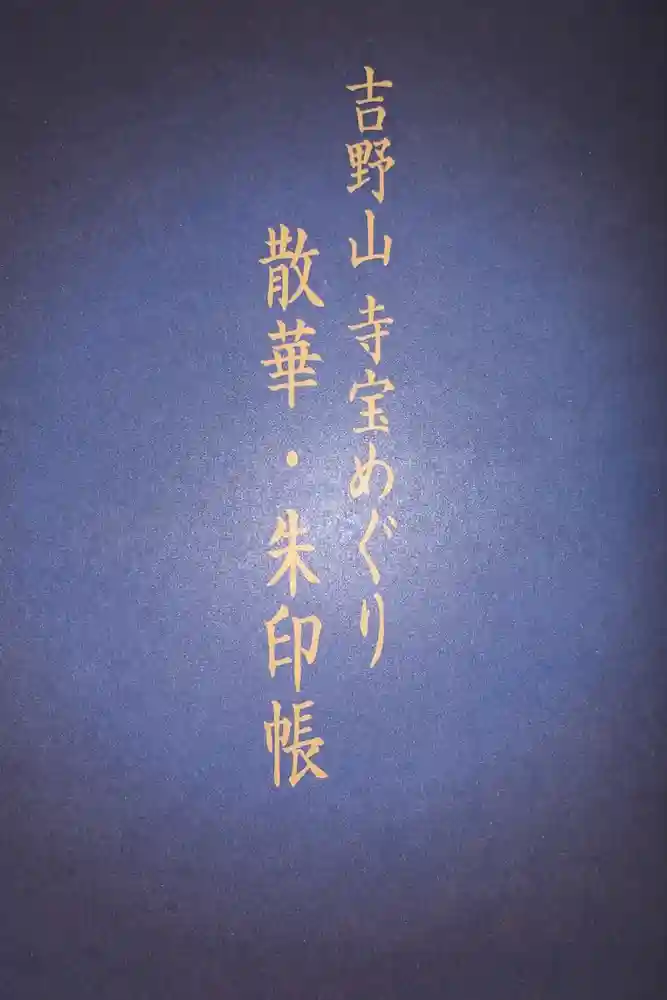 吉野山 寺宝めぐり
散華・朱印帳